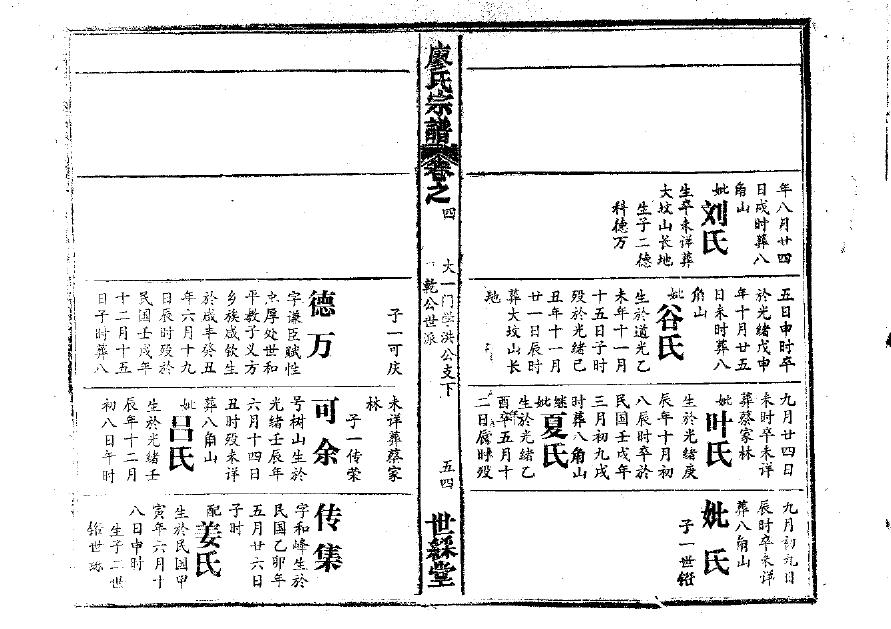 年八月廿四
日戍时葬八
角山
妣
刘氏
生卒未详葬
大坟山长地
生子二德
科德万
五日申时卒
於光绪戊申
年十月廿五
日未时葬八
角山
妣
谷氏
生於道光乙
未年十一月
十五日子时
殁於光绪己
丑年十一月
廿一日辰时
葬大坟山长
地
九月廿四日
未时卒未详
葬蔡家林
妣
叶氏
生於光绪庚
辰年十月初
八辰时卒於
民国壬戍年
三月初九戍
时葬八角山
继妣
夏氏
生於光绪乙
酉年五月十
二日
时殁
九月初九日
辰时卒未详
葬八角山
妣氏
子一世
廖氏宗譜
卷之四
大一门学洪公支下
乾公世派
五四
世綵堂
子一可庆
德万
字谦臣赋性
忠厚处世和
平教子义方
乡族咸钦生
於咸丰癸丑
年六月十九
日辰时殁於
民国壬戍年
十二月十五
日子时葬八
未详葬蔡家
林
子一传荣
可余
号树山生於
光绪壬辰年
六月十四日
丑时殁未详
葬八角山
妣
吕氏
生於光绪壬
辰年十二月
初八日午时
传集
字和峰生於
民国乙卯年
五月廿六日
子时
配
姜氏
生於民国甲
寅年六月十
八日申时
生子二世
世